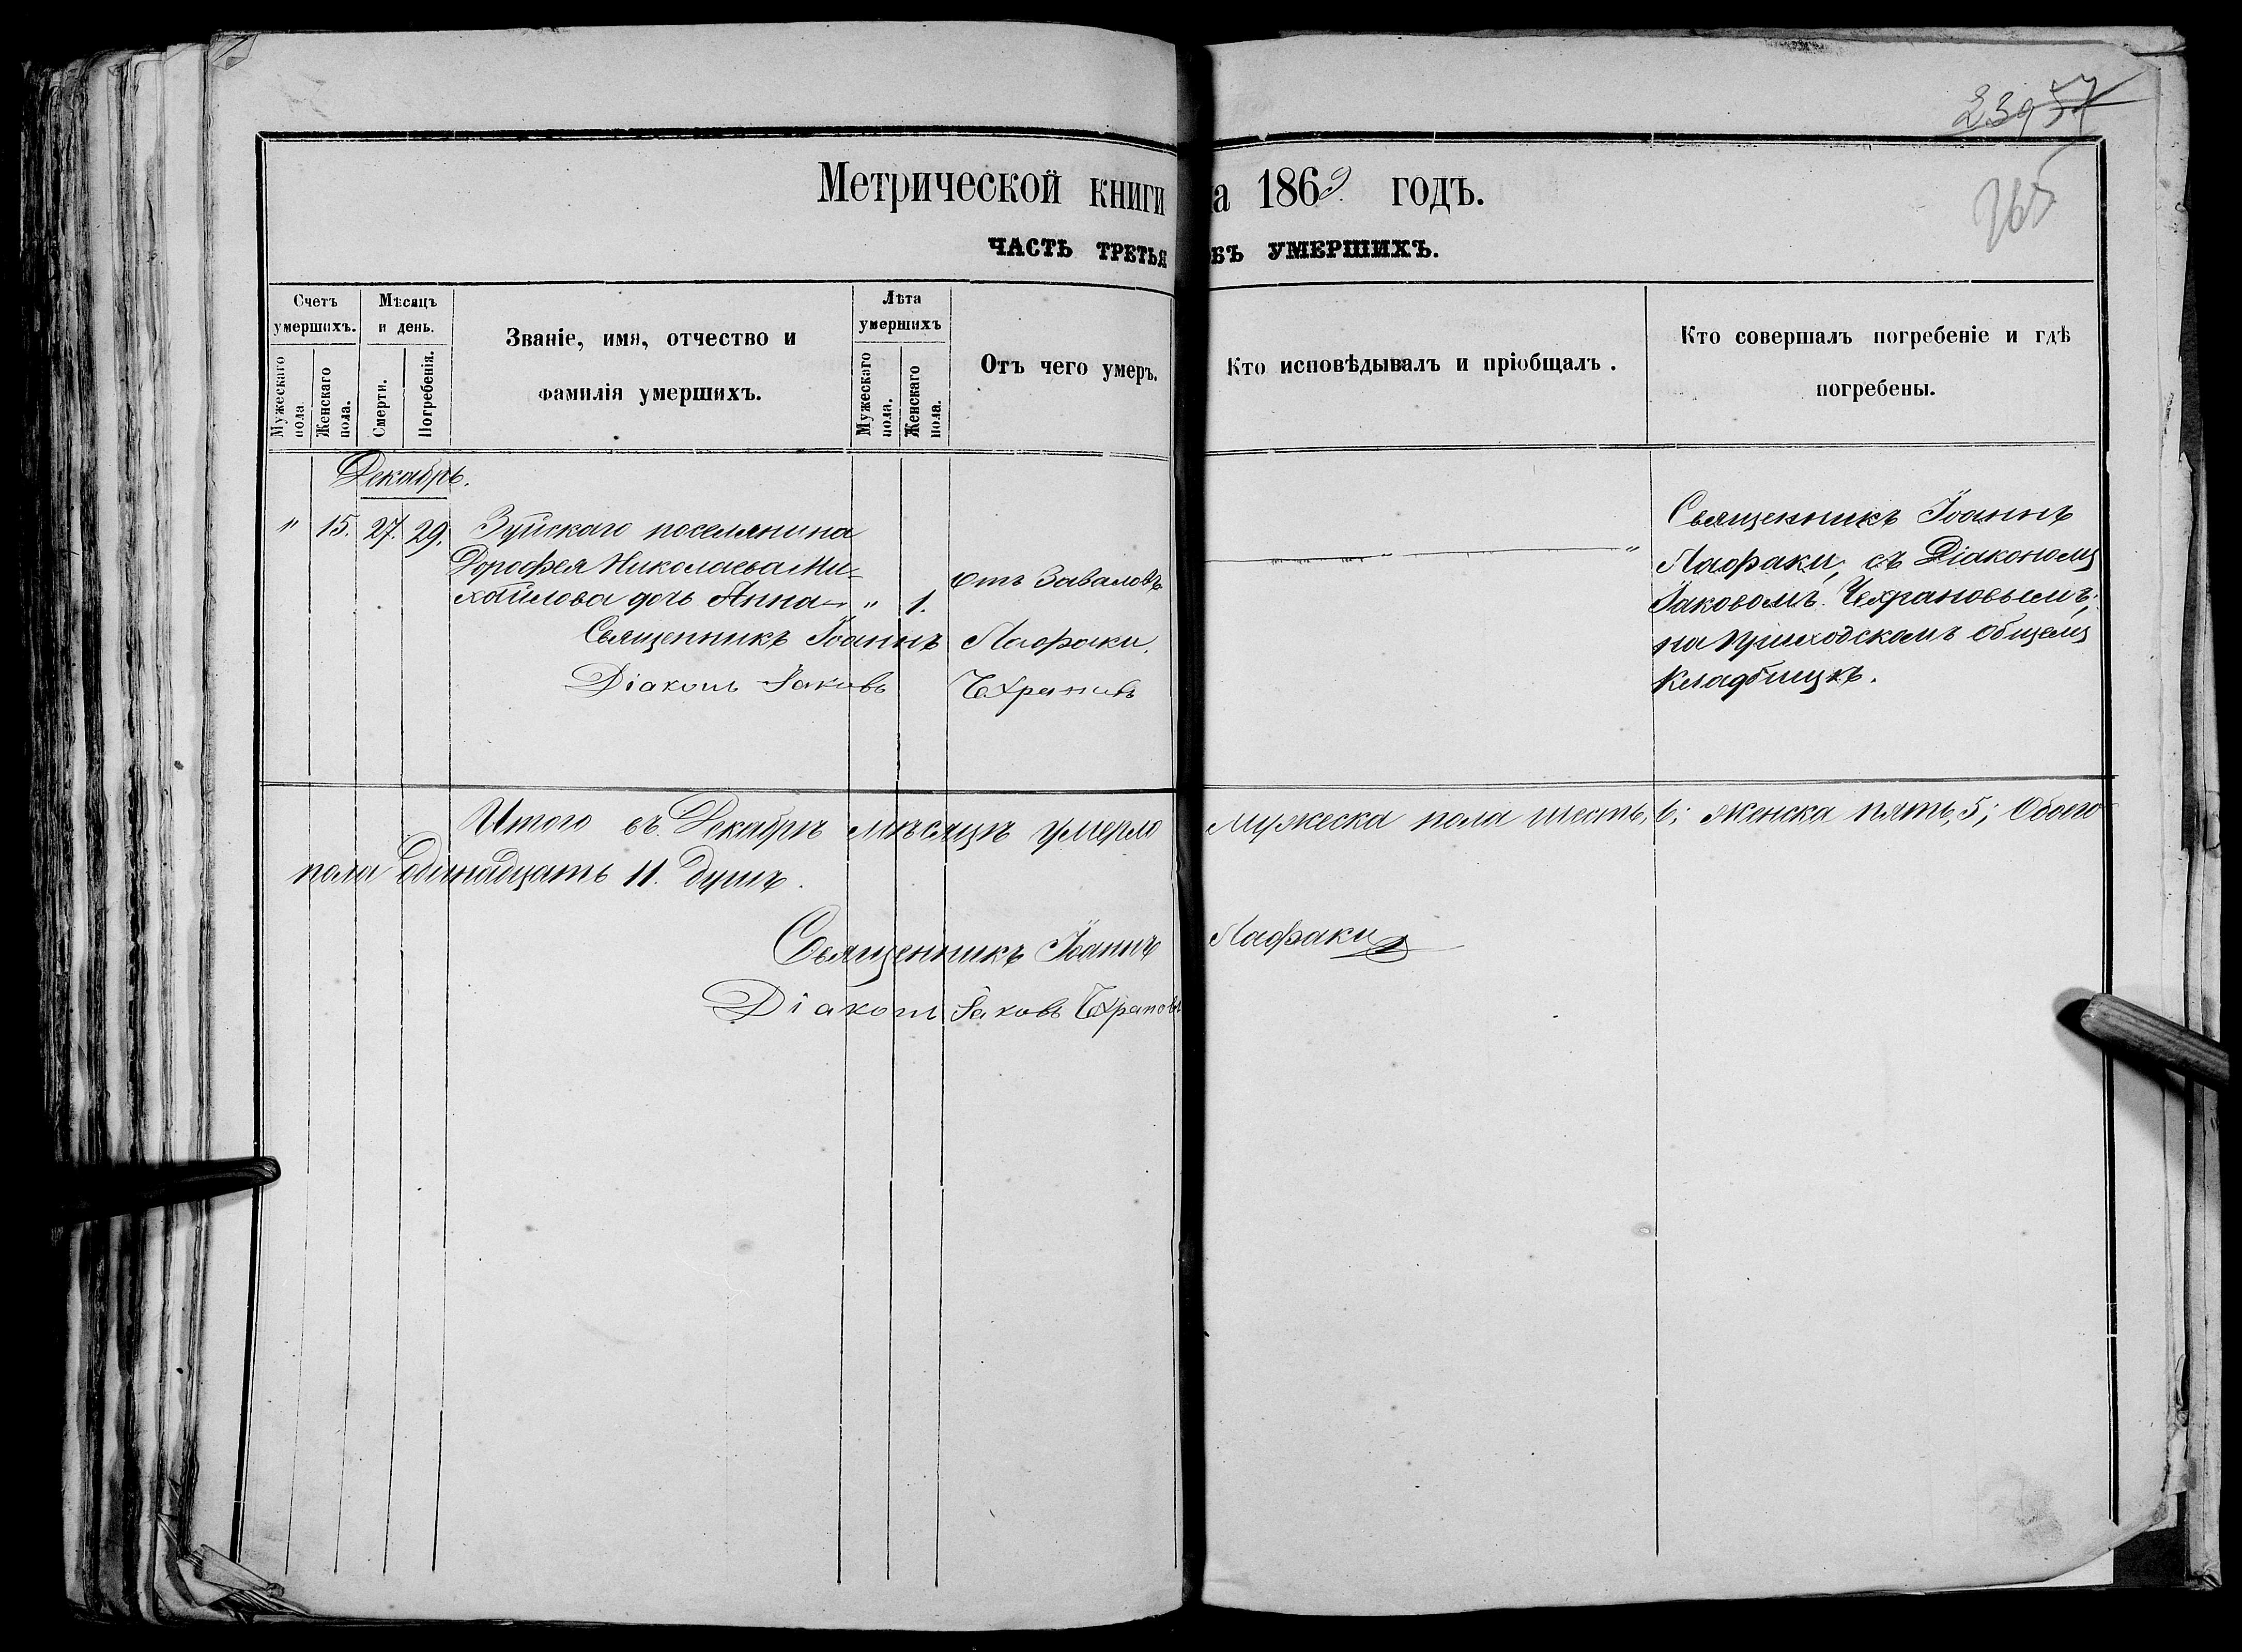 239 57
265
Метрической книги на 1869 годъ.
ЧАСТЬ ТРЕТЬЯ ОБЪ УМЕРШИХЪ.
Счетъ умершихъ.
Мужескаго пола
Женскаго пола.
Мѣсяцъ и день.
Смерти.
Погребенія.
Званіе, имя, отчество и
фамилія умершихъ.
Лѣта умершихъ
Мужескаго пола.
Женскаго пола.
Отъ чего умеръ.
Кто исповѣдывалъ и пріобщалъ.
Кто совершалъ погребеніе и гдѣ
погребены.
Декабрь.
" 15. 27. 29. Зуйскаго поселянина
Дорофея Николаева Ми-
хайлова дочь Анна " 1.
отъ Заваловъ
"
Священникъ Іоаннъ
Лаофаки, съ Діакономъ
Іаковомъ Чехрановымъ,
на приходскомъ общемъ
кладбищѣ.
Священникъ Іоаннъ Лаофаки.
Діаконъ Іаковъ Чехрановъ
Итого въ Декабрѣ мѣсяцѣ умерло мужеска пола шесть, 6; женска пять, 5; Обоего
пола одинадцать 11. душъ.
Священникъ Іоаннъ Лаофаки
Діаконъ Іаковъ Чехрановъ